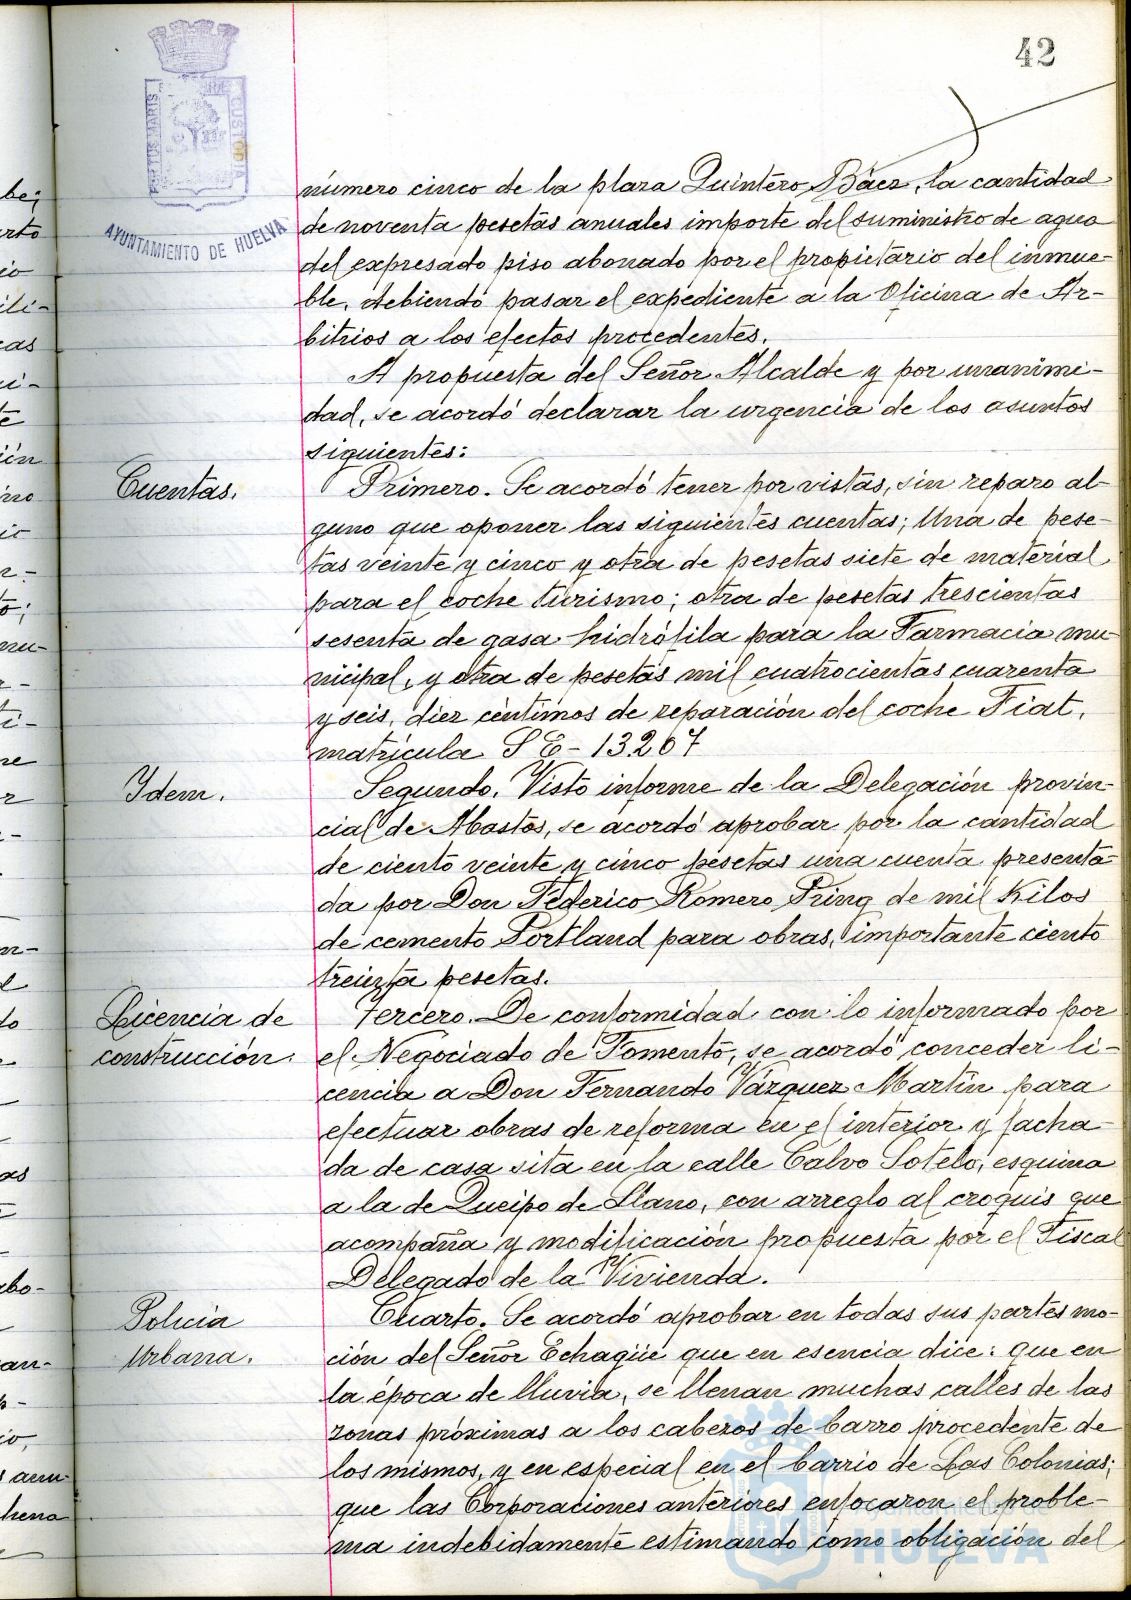 42
AYUNTAMIENTO DE HUELVA
número cinco de la plaza Quintero Báez, la cantidad
de noventa pesetas anuales importe del suministro de agua
del expresado piso abonado por el propietario del inmue-
ble, debiendo pasar el expediente a la Oficina de Ar-
bitrios a los efectos procedentes.
A propuesta del Señor Alcalde y por unanimi-
dad, se acordó declarar la urgencia de los asuntos
siguientes:
Cuentas.
Primero. Se acordó tener por vistas, sin reparo al-
guno que oponer las siguientes cuentas; Una de pese-
tas veinte y cinco y otra de pesetas siete de material
para el coche turismo; otra de pesetas trescientas
sesenta de gasa hidrófila para la Farmacia mu-
nicipal, y otra de pesetas mil cuatrocientas cuarenta
y seis, diez céntimos de reparación del coche Fiat,
matrícula SE-13267
Idem.
Segundo. Visto informe de la Delegación provin-
cial de Abastos, se acordó aprobar por la cantidad
de ciento veinte y cinco pesetas una cuenta presenta-
da por Don Federico Romero Pring de mil Kilos
de cemento Portland para obras, importante ciento
treinta pesetas.
Licencia de
construcción.
Tercero. De conformidad con lo informado por
el Negociado de Fomento, se acordó conceder li-
cencia a Don Fernando Vázquez Martín para
efectuar obras de reforma en el interior y facha-
da de casa sita en la calle Calvo Sotelo, esquina
a la de Queipo de Llano, con arreglo al croquis que
acompaña y modificación propuesta por el Fiscal
Delegado de la Vivienda.
Policía
Urbana.
Cuarto. Se acordó aprobar en todas sus partes mo-
ción del Señor Echagüe que en esencia dice: que en
la época de lluvia, se llenan muchas calles de las
zonas próximas a los cabezos de barro procedente de
los mismos, y en especial en el barrio de Las Colonias;
que las Corporaciones anteriores enfocaron el proble-
ma indebidamente estimando como obligación del
Ayuntamiento de
HUELVA